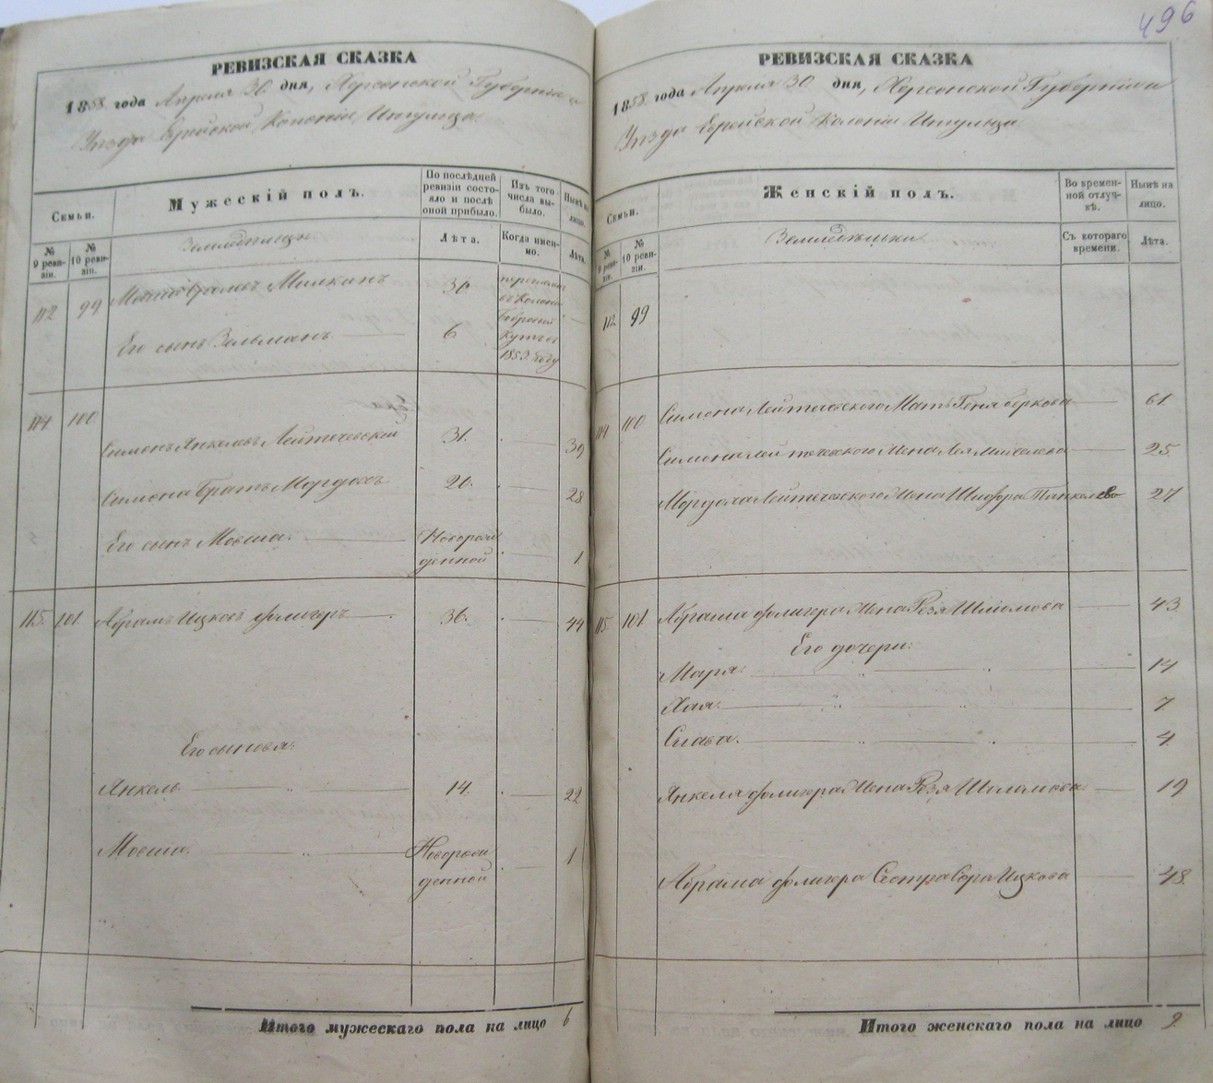 РЕВИЗСКАЯ СКАЗКА
1858. года Апреля 30. дня, Херсонской Губерніи и
Уезда Еврейской Колоніи Ингульца
Семьи.
Мужескій полъ.
По послѣдней ревизіи состояло и послѣ оной прибыло.
Изъ того числа выбыло.
Нынѣ на лицо.
№ 9 ревизіи.
№ 10 ревизіи.
Земледельцы
Лѣта.
Когда именно.
Лѣта.
112 99 30.
въ Колонію
Его сынъ Зельманъ 6
Кутъ въ
1853 году
114 100
Симонъ Янкелевъ Лейтчевскій 31. 39
Симона братъ Мордохъ 20. 28
Его сынъ Мовша. Новорожденной 1
115 101 Абрамъ Ицковъ 36. 44
Его сыновья:
Янкель 14. 22
Мовша. Новорожденной 1
Итого мужескаго пола на лицо 6
496
РЕВИЗСКАЯ СКАЗКА
1858. года Апреля 30 дня, Херсонской Губерніи и
Уезда Еврейской Колоніи Ингульца
Семьи.
Женскій полъ.
Во временной отлучкѣ.
Нынѣ на лицо.
№ 9 ревизіи.
№ 10 ревизіи.
Съ котораго времени.
Лѣта.
112 99
114 100 Симона Лейтчевского Мать Геня Беркова 61
Симона Лейтчевского Жена Лея 25
Мордоха Лейтчевского Жена Шифра 27
115 101 Абрама Жена Рейзя Шліомова 43
Его дочери:
Маря: 14
Хая: 7
Слава. 4
Янкеля Жена Рейзя Шліомова 19
Абрама Сестра Сора Ицкова 48
Итого женскаго пола на лицо 9